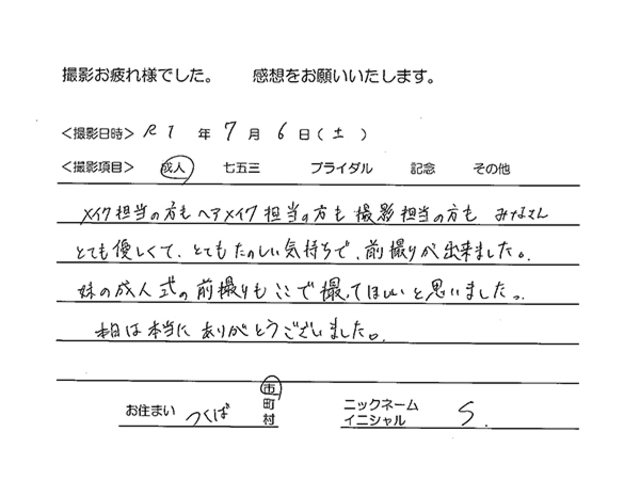 撮影お疲れ様でした。 感想をお願いいたします。
＜撮影日時＞ R1 年 7 月 6 日（土）
＜撮影項目＞ 成人 七五三 ブライダル 記念 その他
メイク担当の方もヘアメイク担当の方も撮影担当の方も みなさん
とても優しくて、とてもたのしい気持ちで、前撮りが出来ました。
妹の成人式の前撮りもここで撮ってほしいと思いました。
本日は本当にありがとうございました。
お住まい つくば 市町村 ニックネーム イニシャル S.